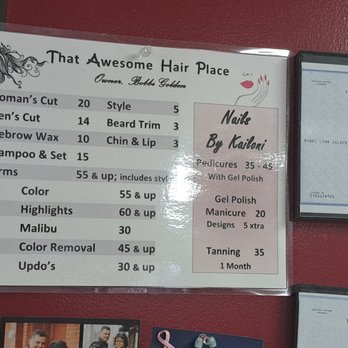 That Awesome Hair Place
Owner, Bobbi Golden
oman's Cut 20 Style 5
en's Cut 14 Beard Trim 3
ebrow Wax 10 Chin & Lip 3
ampoo & Set 15
rms 55 & up; includes style
Color 55 & up
Highlights 60 & up
Malibu 30
Color Removal 45 & up
Updo's 30 & up
Nails
By Kailoni
Pedicures 35 - 45
With Gel Polish
Gel Polish
Manicure 20
Designs 5 xtra
Tanning 35
1 Month
BOBBI LYNN GOLDEN